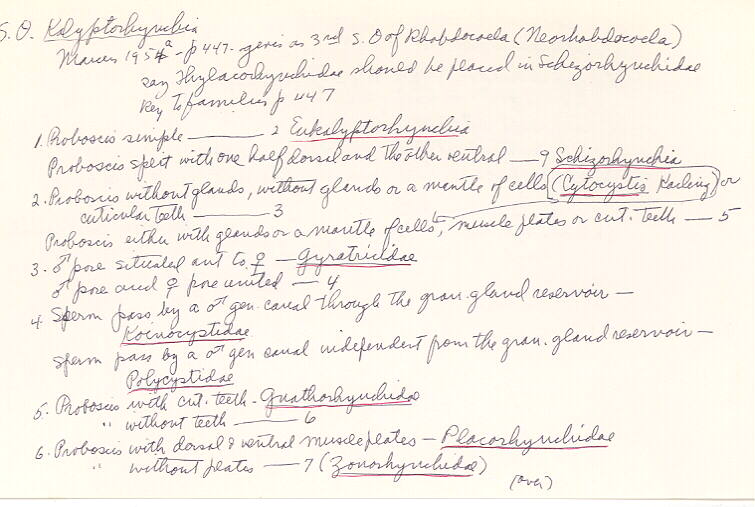 S.O. Kalyptorhynchia
Marcus 1954a - p 447 - gives as 3rd S.O of Rhabdocoela (Neorhabdocoela)
say Thylacorhynchidae should be placed in Schizorhynchidae
Key to families p 447
1. Proboscis simple —— 2 Eukalyptorhynchia
Proboscis split with one half dorsal and the other ventral — 9 Schizorhynchia
2. Proboscis without glands, without glands or a mantle of cells (Cytocystis Karling) or
cuticular teeth —— 3
Proboscis either with glands or a mantle of cells, muscle plates or cut. teeth — 5
3. ♂ pore situated ant to ♀ — Gyratricidae
♂ pore and ♀ pore united — 4
4. Sperm pass by a ♂ gen. canal through the gran. gland reservoir —
Koinocystidae
Sperm pass by a ♂ gen canal independent from the gran. gland reservoir —
Polycystidae
5. Proboscis with cut. teeth - Gnathorhynchidae
" without teeth —— 6
6. Proboscis with dorsal & ventral muscle plates — Placorhynchidae
" without plates — 7 (Zonorhynchidae)
(over)